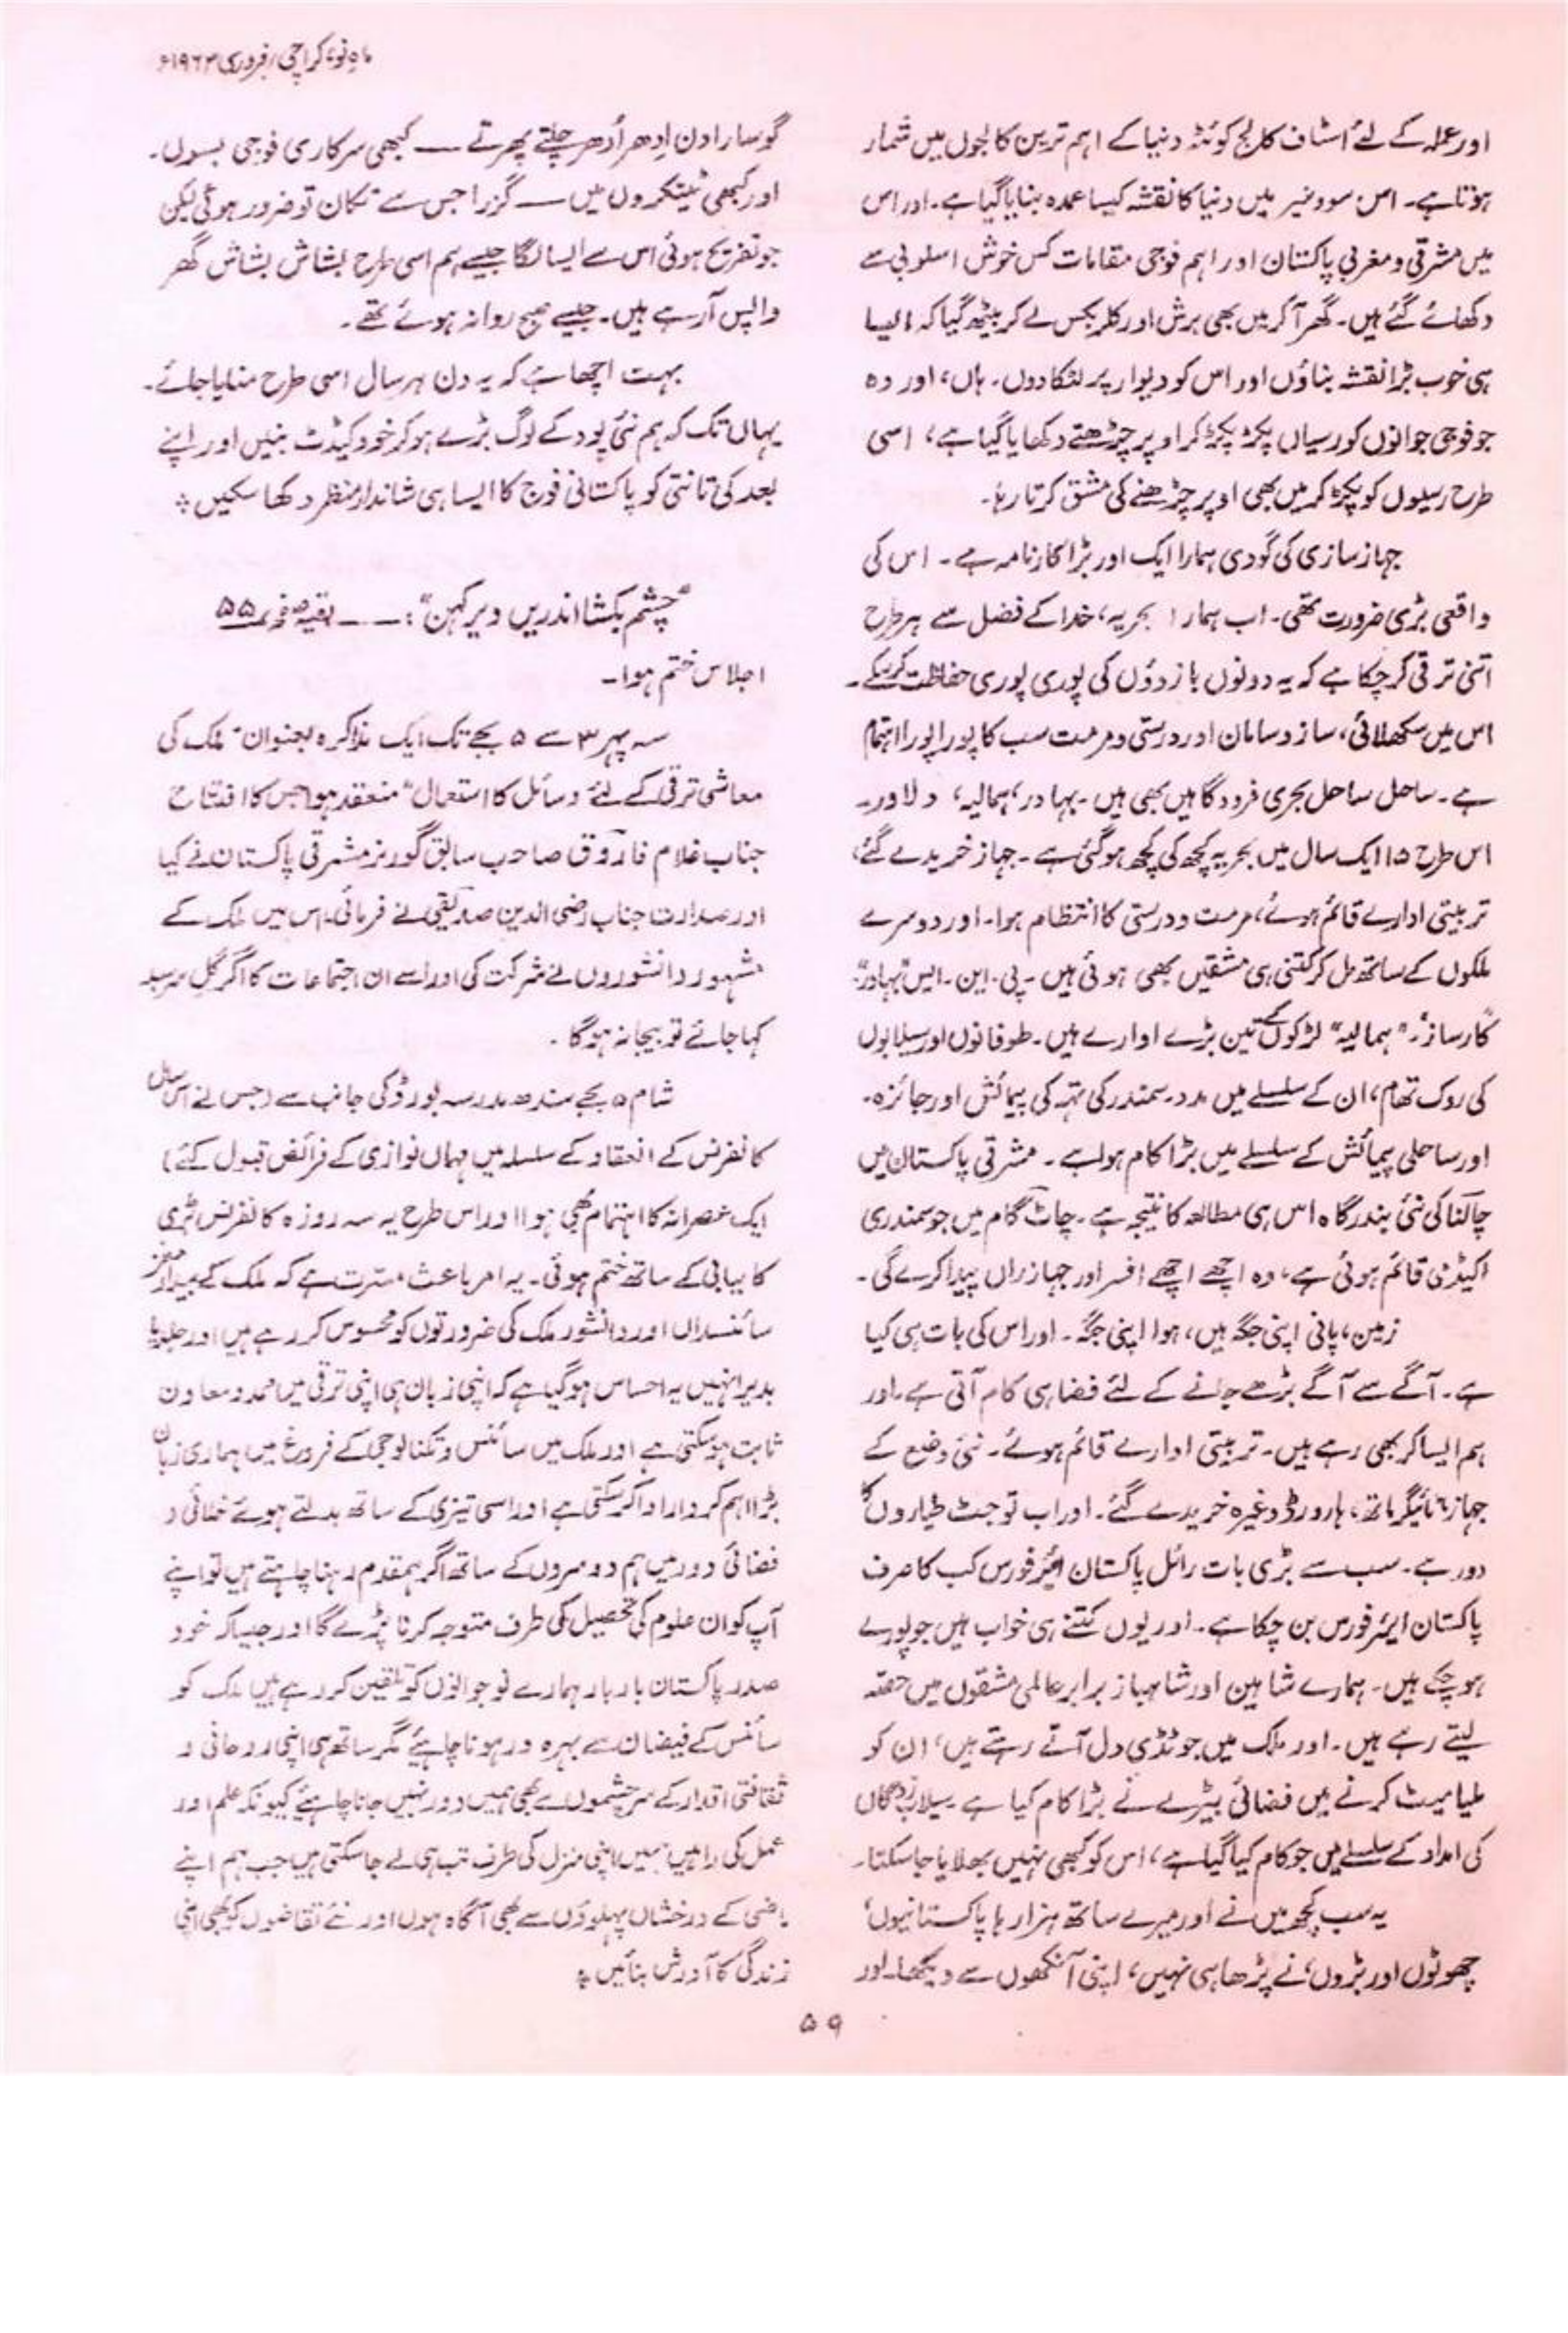 ماہِ نو، کراچی، فروری ۱۹۶۳ء
اور عملہ کے لئے اسٹاف کالج کوئٹہ دنیا کے اہم ترین کالجوں میں شمار
ہوتا ہے۔ اس سووینیر میں دنیا کا نقشہ کیسا عمدہ بنایا گیا ہے۔ اور اس
میں مشرقی و مغربی پاکستان اور اہم فوجی مقامات کس خوش اسلوبی سے
دکھائے گئے ہیں۔ گھر آ کر میں بھی برش اور کلر بکس لے کر بیٹھ گیا کہ ایسا
ہی خوب بڑا نقشہ بناؤں اور اس کو دیوار پر لٹکا دوں۔ ہاں، اور وہ
جو فوجی جوانوں کو رسیاں پکڑ پکڑ کر اوپر چڑھتے دکھایا گیا ہے، اسی
طرح رسیوں کو پکڑ کر میں بھی اوپر چڑھنے کی مشق کرتا رہا۔
جہاز سازی کی گودی ہمارا ایک اور بڑا کارنامہ ہے۔ اس کی
واقعی بڑی ضرورت تھی۔ اب ہمارا بحریہ، خدا کے فضل سے ہر طرح
اتنی ترقی کر چکا ہے کہ یہ دونوں بازوؤں کی پوری پوری حفاظت کر سکے۔
اس میں سکھلائی، ساز و سامان اور درستی و مرمت سب کا پورا پورا اہتمام
ہے۔ ساحل ساحل بحری فرودگاہیں بھی ہیں۔ بہادر، ہمالیہ، دلاور۔
اس طرح ۱۵ ایک سال میں بحریہ کچھ کی کچھ ہو گئی ہے۔ جہاز خریدے گئے،
تربیتی ادارے قائم ہوئے، مرمت و درستی کا انتظام ہوا۔ اور دوسرے
ملکوں کے ساتھ مل کر کتنی ہی مشقیں بھی ہوئی ہیں۔ پی۔ این۔ ایس "بہادر"،
"کارساز"۔ "ہمالیہ" لڑکوں کے تین بڑے ادارے ہیں۔ طوفانوں اور سیلابوں
کی روک تھام، ان کے سلسلے میں مدد۔ سمندر کی تہہ کی پیمائش اور جائزہ۔
اور ساحلی پیمائش کے سلسلے میں بڑا کام ہوا ہے۔ مشرقی پاکستان میں
چالنا کی نئی بندرگاہ اس ہی مطالعہ کا نتیجہ ہے۔ چاٹ گام میں جو سمندری
اکیڈمی قائم ہوئی ہے، وہ اچھے اچھے افسر اور جہازراں پیدا کرے گی۔
زمین، پانی اپنی جگہ ہیں، ہوا اپنی جگہ۔ اور اس کی بات ہی کیا
ہے۔ آگے سے آگے بڑھے جانے کے لئے فضا ہی کام آتی ہے۔ اور
ہم ایسا کر بھی رہے ہیں۔ تربیتی ادارے قائم ہوئے۔ نئی وضع کے
جہاز ٹائیگر ماتھ، ہارورڈ وغیرہ خریدے گئے۔ اور اب تو جٹ طیاروں کا
دور ہے۔ سب سے بڑی بات رائل پاکستان ائیر فورس کب کا صرف
پاکستان ایئر فورس بن چکا ہے۔ اور یوں کتنے ہی خواب ہیں جو پورے
ہو چکے ہیں۔ ہمارے شاہین اور شاہباز برابر عالمی مشقوں میں حصّہ
لیتے رہے ہیں۔ اور ملک میں جو ٹڈی دل آتے رہتے ہیں، ان کو
ملیامیٹ کرنے میں فضائی بیڑے نے بڑا کام کیا ہے۔ سیلاب زدگان
کی امداد کے سلسلے میں جو کام کیا گیا ہے، اس کو کبھی نہیں بھلایا جا سکتا۔
یہ سب کچھ میں نے اور میرے ساتھ ہزار ہا پاکستانیوں،
چھوٹوں اور بڑوں، نے پڑھا ہی نہیں، اپنی آنکھوں سے دیکھا۔ اور
گو سارا دن اِدھر اُدھر چلتے پھرتے — کبھی سرکاری فوجی بسوں۔
اور کبھی ٹینکروں میں — گزرا جس سے تکان تو ضرور ہوئی لیکن
جو تفریح ہوئی اس سے ایسا لگا جیسے ہم اسی طرح بشاش بشاش گھر
واپس آ رہے ہیں۔ جیسے صبح روانہ ہوئے تھے۔
بہت اچھا ہے کہ یہ دن ہر سال اسی طرح منایا جائے۔
یہاں تک کہ ہم نئی پود کے لوگ بڑے ہو کر خود کیڈٹ بنیں اور اپنے
بعد کی تانتی کو پاکستانی فوج کا ایسا ہی شاندار منظر دکھا سکیں ٭
"چشم بکشا اندریں دیر کہن": —— بقیہ صفحہ ۵۵
اجلاس ختم ہوا۔
سہ پہر ۳ سے ۵ بجے تک ایک مذاکرہ بعنوان "ملک کی
معاشی ترقی کے لئے وسائل کا استعمال" منعقد ہوا جس کا افتتاح
جناب غلام فاروق صاحب سابق گورنر مشرقی پاکستان نے کیا
اور صدارت جناب رضی الدین صدیقی نے فرمائی۔ اس میں ملک کے
مشہور دانشوروں نے شرکت کی اور اسے ان اجتماعات کا اگر گلِ سرسبد
کہا جائے تو بیجا نہ ہوگا۔
شام ۵ بجے سندھ مدرسہ بورڈ کی جانب سے (جس نے اس سال
کانفرنس کے انعقاد کے سلسلہ میں مہماں نوازی کے فرائض قبول کئے)
ایک عصرانہ کا اہتمام بھی ہوا اور اس طرح یہ سہ روزہ کانفرنس بڑی
کامیابی کے ساتھ ختم ہوئی۔ یہ امر باعث مسرت ہے کہ ملک کے بیدار مغز
سائنسداں اور دانشور ملک کی ضرورتوں کو محسوس کر رہے ہیں اور جلد یا
بدیر انہیں یہ احساس ہو گیا ہے کہ اپنی زبان ہی اپنی ترقی میں ممد و معاون
ثابت ہو سکتی ہے اور ملک میں سائنس و تکنالوجی کے فروغ میں ہماری زبان
بڑا اہم کردار ادا کر سکتی ہے اور اسی تیزی کے ساتھ بدلتے ہوئے خلائی و
فضائی دور میں ہم دوسروں کے ساتھ اگر ہمقدم رہنا چاہتے ہیں تو اپنے
آپ کو ان علوم کی تحصیل کی طرف متوجہ کرنا پڑے گا اور جیسا کہ خود
صدر پاکستان بار بار ہمارے نوجوانوں کو تلقین کر رہے ہیں ملک کو
سائنس کے فیضان سے بہرہ ور ہونا چاہیئے مگر ساتھ ہی اپنی روحانی و
ثقافتی اقدار کے سرچشموں سے بھی ہمیں دور نہیں جانا چاہیئے کیونکہ علم اور
عمل کی راہیں ہمیں اپنی منزل کی طرف تب ہی لے جا سکتی ہیں جب ہم اپنے
ماضی کے درخشاں پہلوؤں سے بھی آگاہ ہوں اور نئے تقاضوں کو بھی اپنی
زندگی کا آدرش بنائیں ٭
۵۹